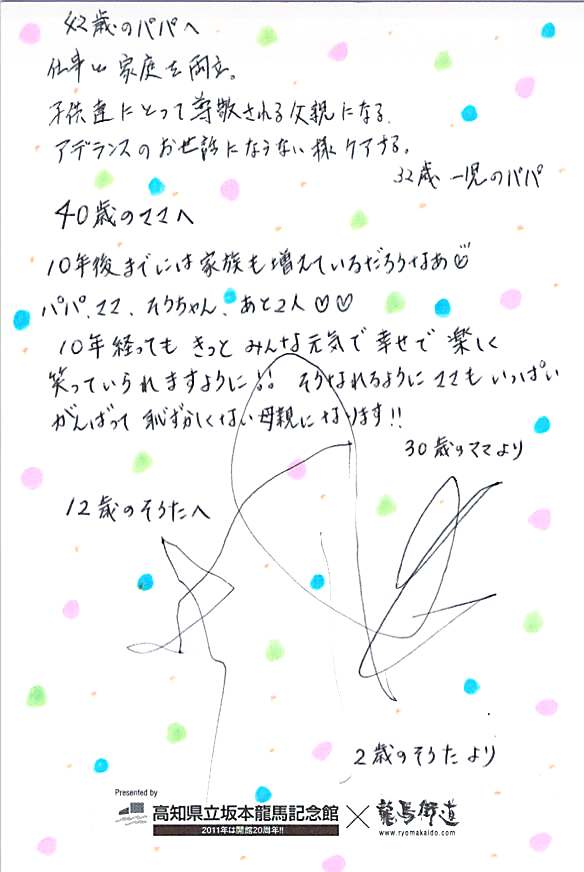 42歳のパパへ
仕事と家庭を両立。
子供達にとって尊敬される父親になる.
アデランスのお世話にならない様ケアする。
32歳 一児のパパ
40歳のママへ
10年後までには家族も増えているだろうなあ♡
パパ、ママ、そうちゃん、あと2人♡♡
10年経っても きっと みんな元気で幸せで 楽しく
笑っていられますように!! そうなれるように ママも いっぱい
がんばって 恥ずかしくない母親に なります!!
30歳のママより
12歳のそうたへ
2歳のそうたより
Presented by
高知県立坂本龍馬記念館 × 龍馬街道
2011年は開館20周年!!
www.ryomakaido.com